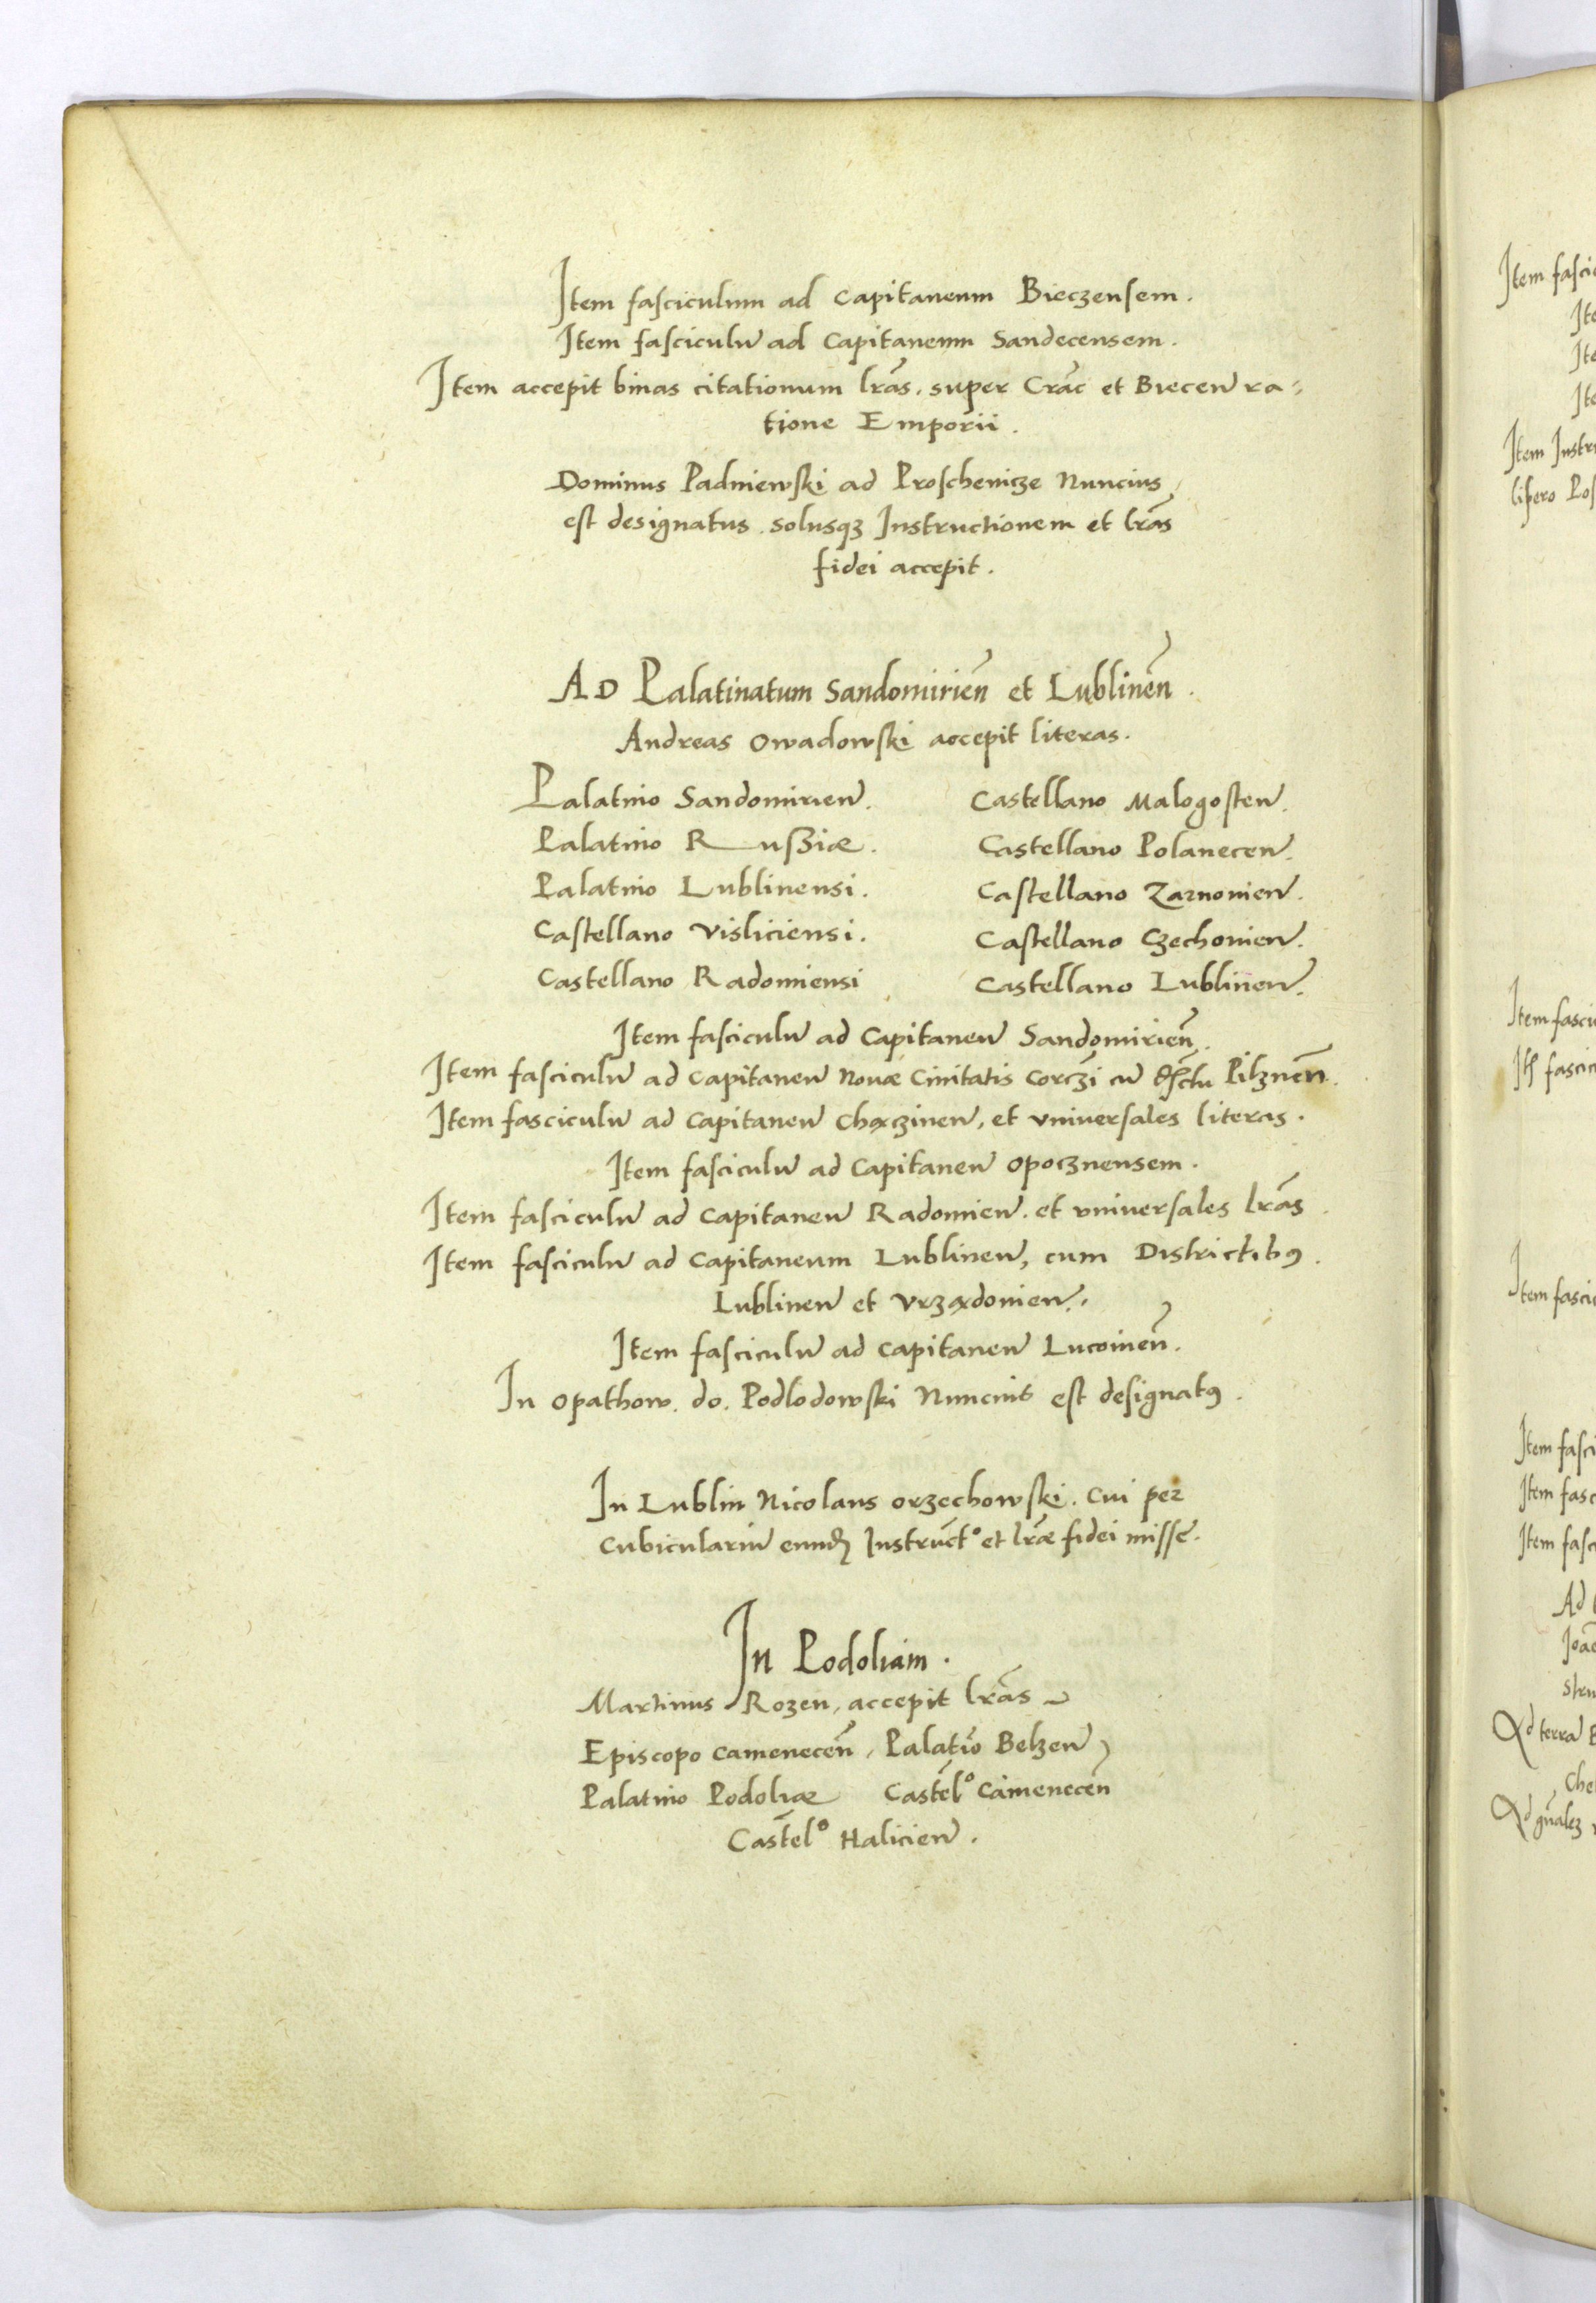 Item fasciculum ad Capitaneum Bieczensem.
Item fasciculu͂ ad Capitaneum Sandecensem.
Item accepit binas citationum lr̃as, super Crac̃ et Biecen̄ ra=
tione Emporii.
Dominus Padniewski ad Proschenicze Nuncius
est designatus. solusqꝫ Instructionem et lr̃as
fidei accepit.
AD Palatinatum Sandomirien̄ et Lublinen̄.
Andreas Owadowski accepit literas.
Palatino Sandomirien̄.
Palatino Rußiæ.
Palatino Lublinensi.
Castellano Visliciensi.
Castellano Radomiensi
Castellano Malogosten̄.
Castellano Polanecen̄.
Castellano Zarnowien̄.
Castellano Czechowien̄.
Castellano Lublinen̄.
Item fasciculu͂ ad Capitaneu͂ Sandomirien̄.
Item fasciculu͂ ad Capitaneu͂ Novæ Civitatis Corczi̇̄ cu͂ Pilznen̄.
Item fasciculu͂ ad Capitaneu͂ Chączinen̄, et vniversales literas.
Item fasciculu͂ ad Capitaneu͂ Opocznensem.
Item fasciculu͂ ad Capitaneu͂ Radomien̄. et vniversales lr̃as.
Item fasciculu͂ ad Capitaneum Lublinen̄, cum Districtibꝰ.
Lublinen̄ et Vrządowien̄.
Item fasciculu͂ ad Capitaneu͂ Lucovien̄.
In Opathow. do. Podlodowski Nuncius est designatꝰ.
In Lublin Nicolaus Orzechowski. Cui per
Cubiculariu͂ eund̄ Instruct̃º et lr̃æ fidei missę.
In Podoliam.
Martinus Rozen, accepit lr̃as
Episcopo Camenecen̄, Palatĩo Belzen̄
Palatino Podoliæ Castel̃º Camenecen̄
Castel̃º Halicien̄.
Item fasci
Ite
Ite
Ite
Item Instru
Item fasci
fasci
Item fasci
Item fasci
Item fasc
Item fasci
Ad
Joa
stru
Ad terra͂
Che